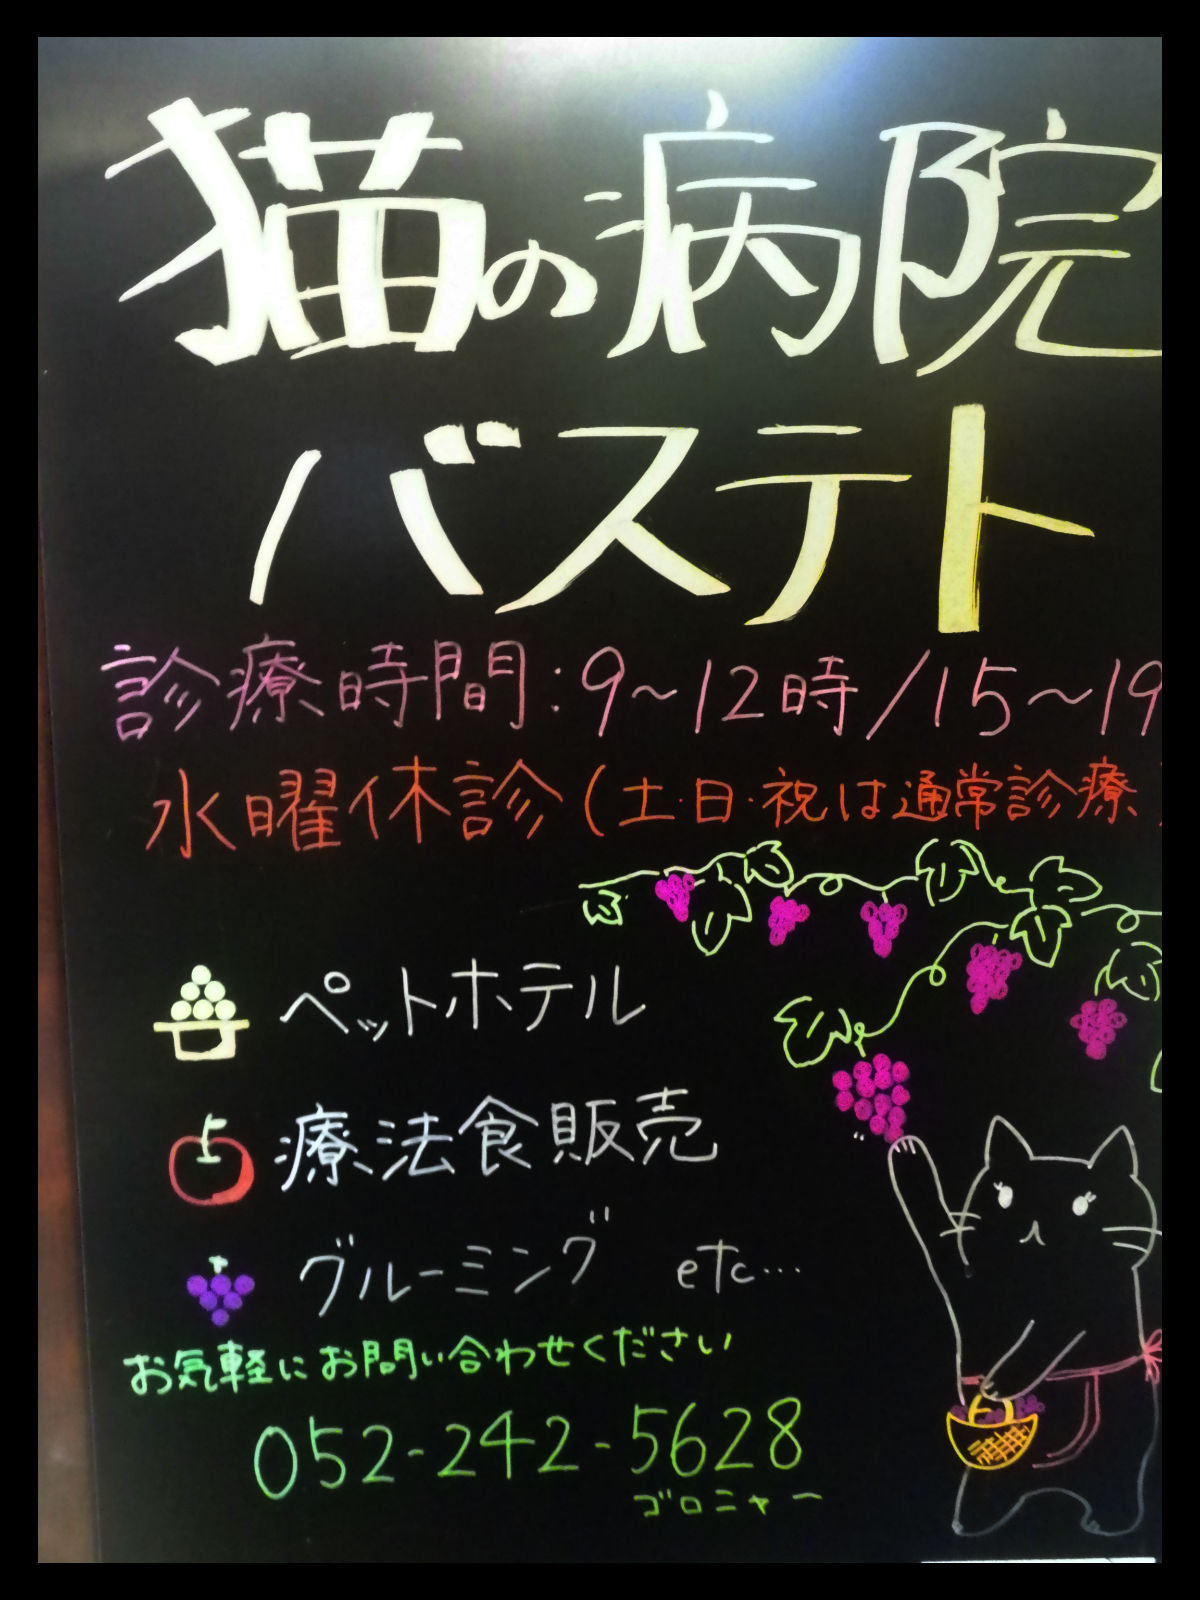 猫の病院
バステト
診療時間:9~12時/15~19
水曜休診(土・日・祝は通常診療)
ペットホテル
療法食販売
グルーミング etc…
お気軽にお問い合わせください
052-242-5628
ゴロニャー